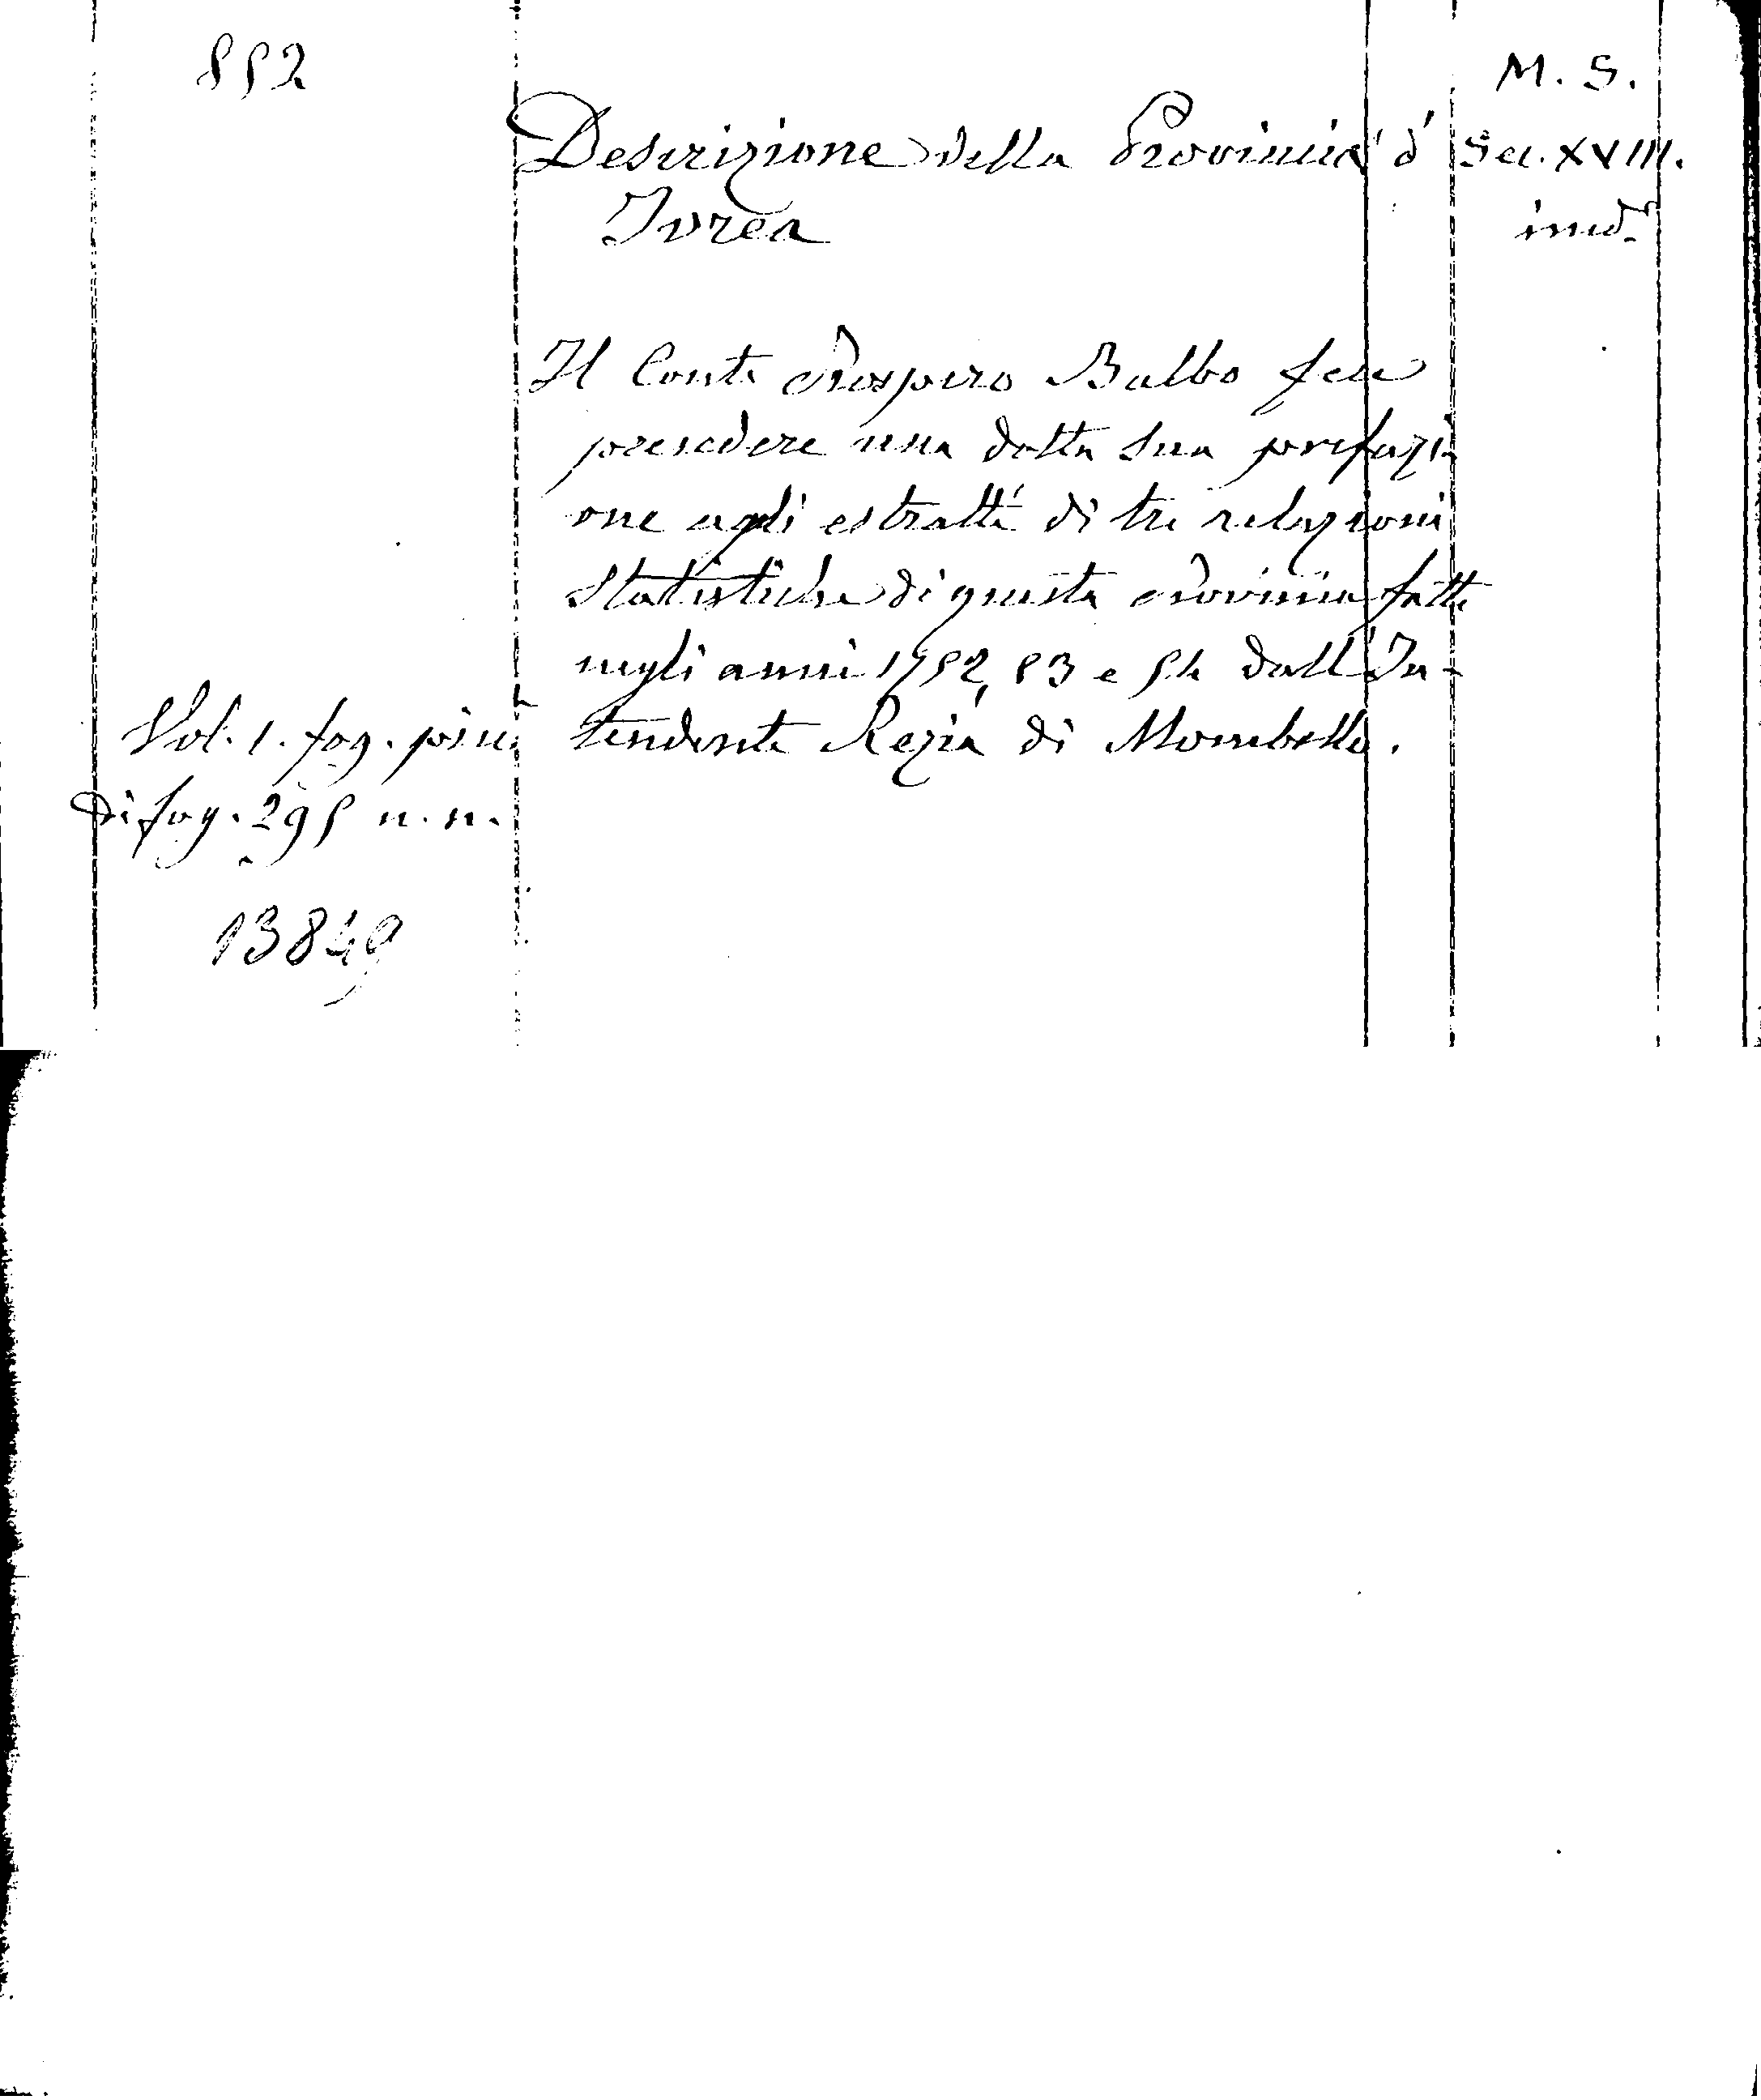 882
M. S.
Descrizione della Provincia d'
Sec. XVIII.
Ivrea
Il Conte Prospero Balbo fece
precedere una dotta sua prefazi-
one agli estratti di tre relazioni
statistiche di questa Provincia fatte
negli anni 1752, 53 e 54 dall'In-
tendente Regia di Mombello.
Vol. 1. fog. picc.
di fog. 295 n. n.
13849